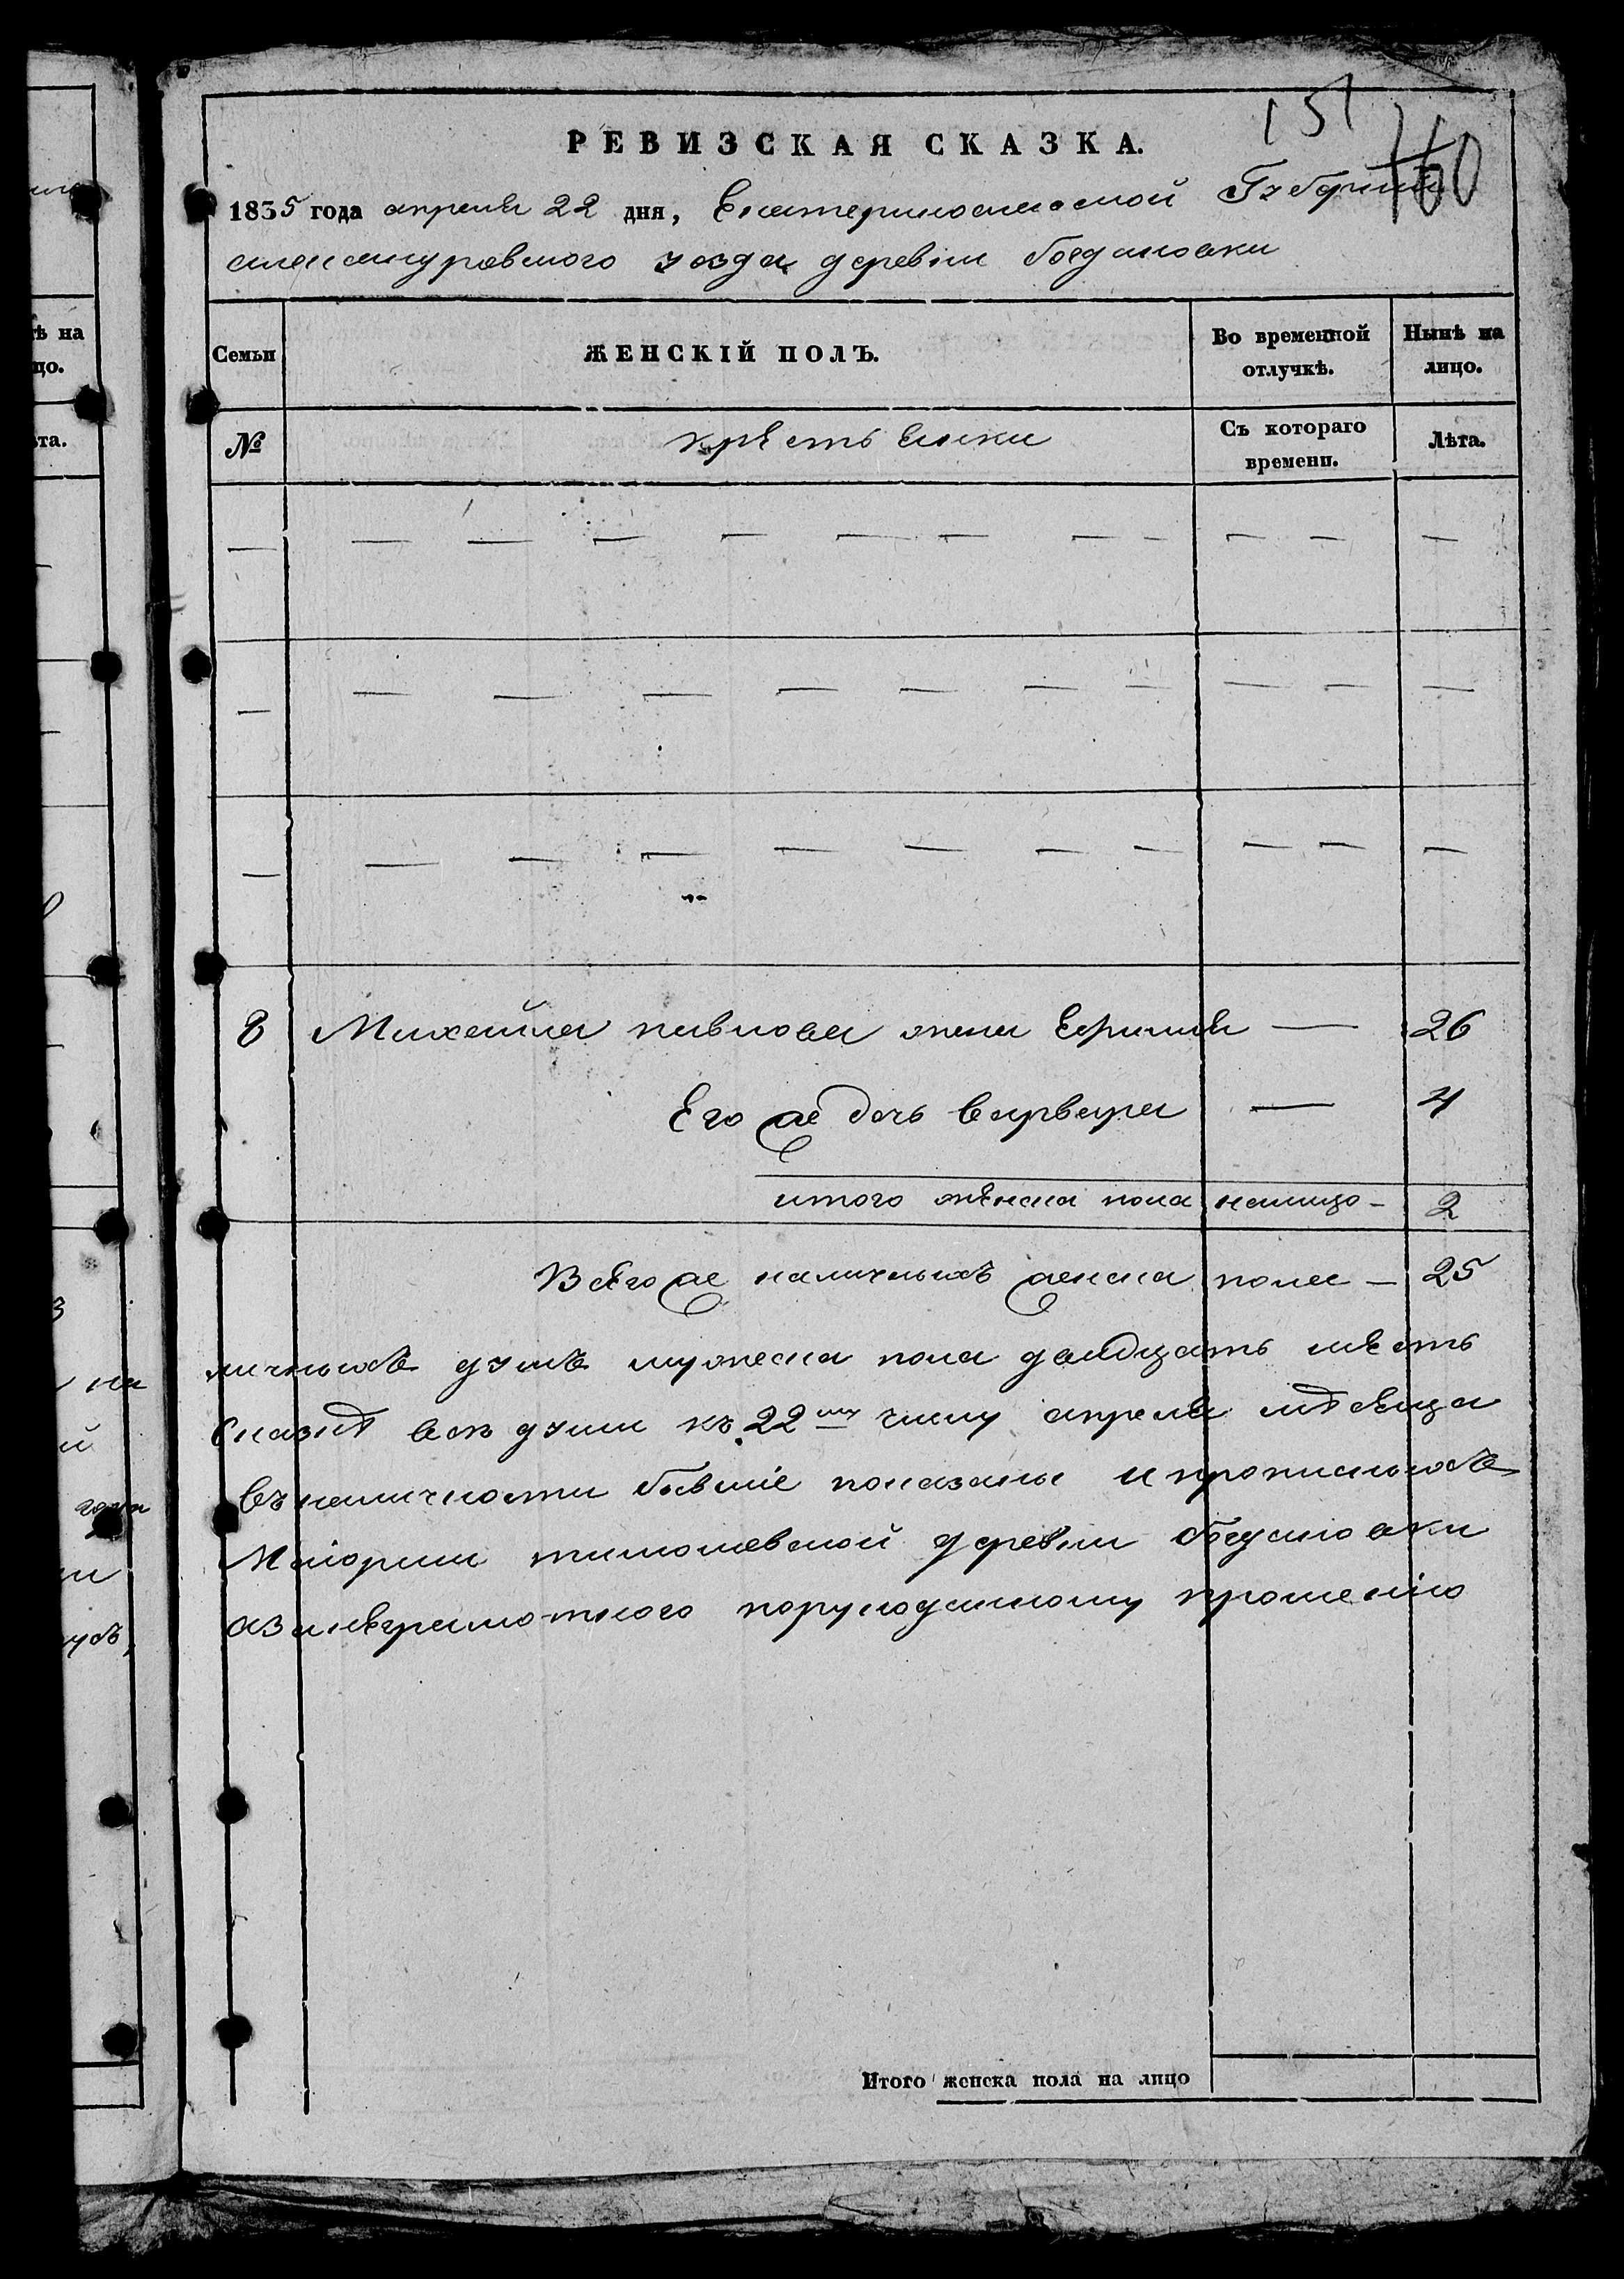 151
160
РЕВИЗСКАЯ СКАЗКА.
1835 года апреля 22 дня, Екатеринославской Губернии
александровского уезда деревни богдановки
Семьи
ЖЕНСКІЙ ПОЛЪ.
Во временной отлучкѣ.
Нынѣ на лицо.
№
крестьянки
Съ котораго времени.
Лѣта.
8 Михайла павлова жена — 26
Его же дочь варвара — 4
итого женска пола налицо - 2
Всего же наличныхъ женска пола — 25
личныхъ душъ мужеска пола двадцать шесть
все души къ 22му числу апреля месяца
въ наличности бывшіе показаны и прописныхъ
Маіорши тимошевской деревни богдановки
азанеграмотного порукоданному прошенію
Итого женска пола на лицо
ѣ на
цо.
ѣта.